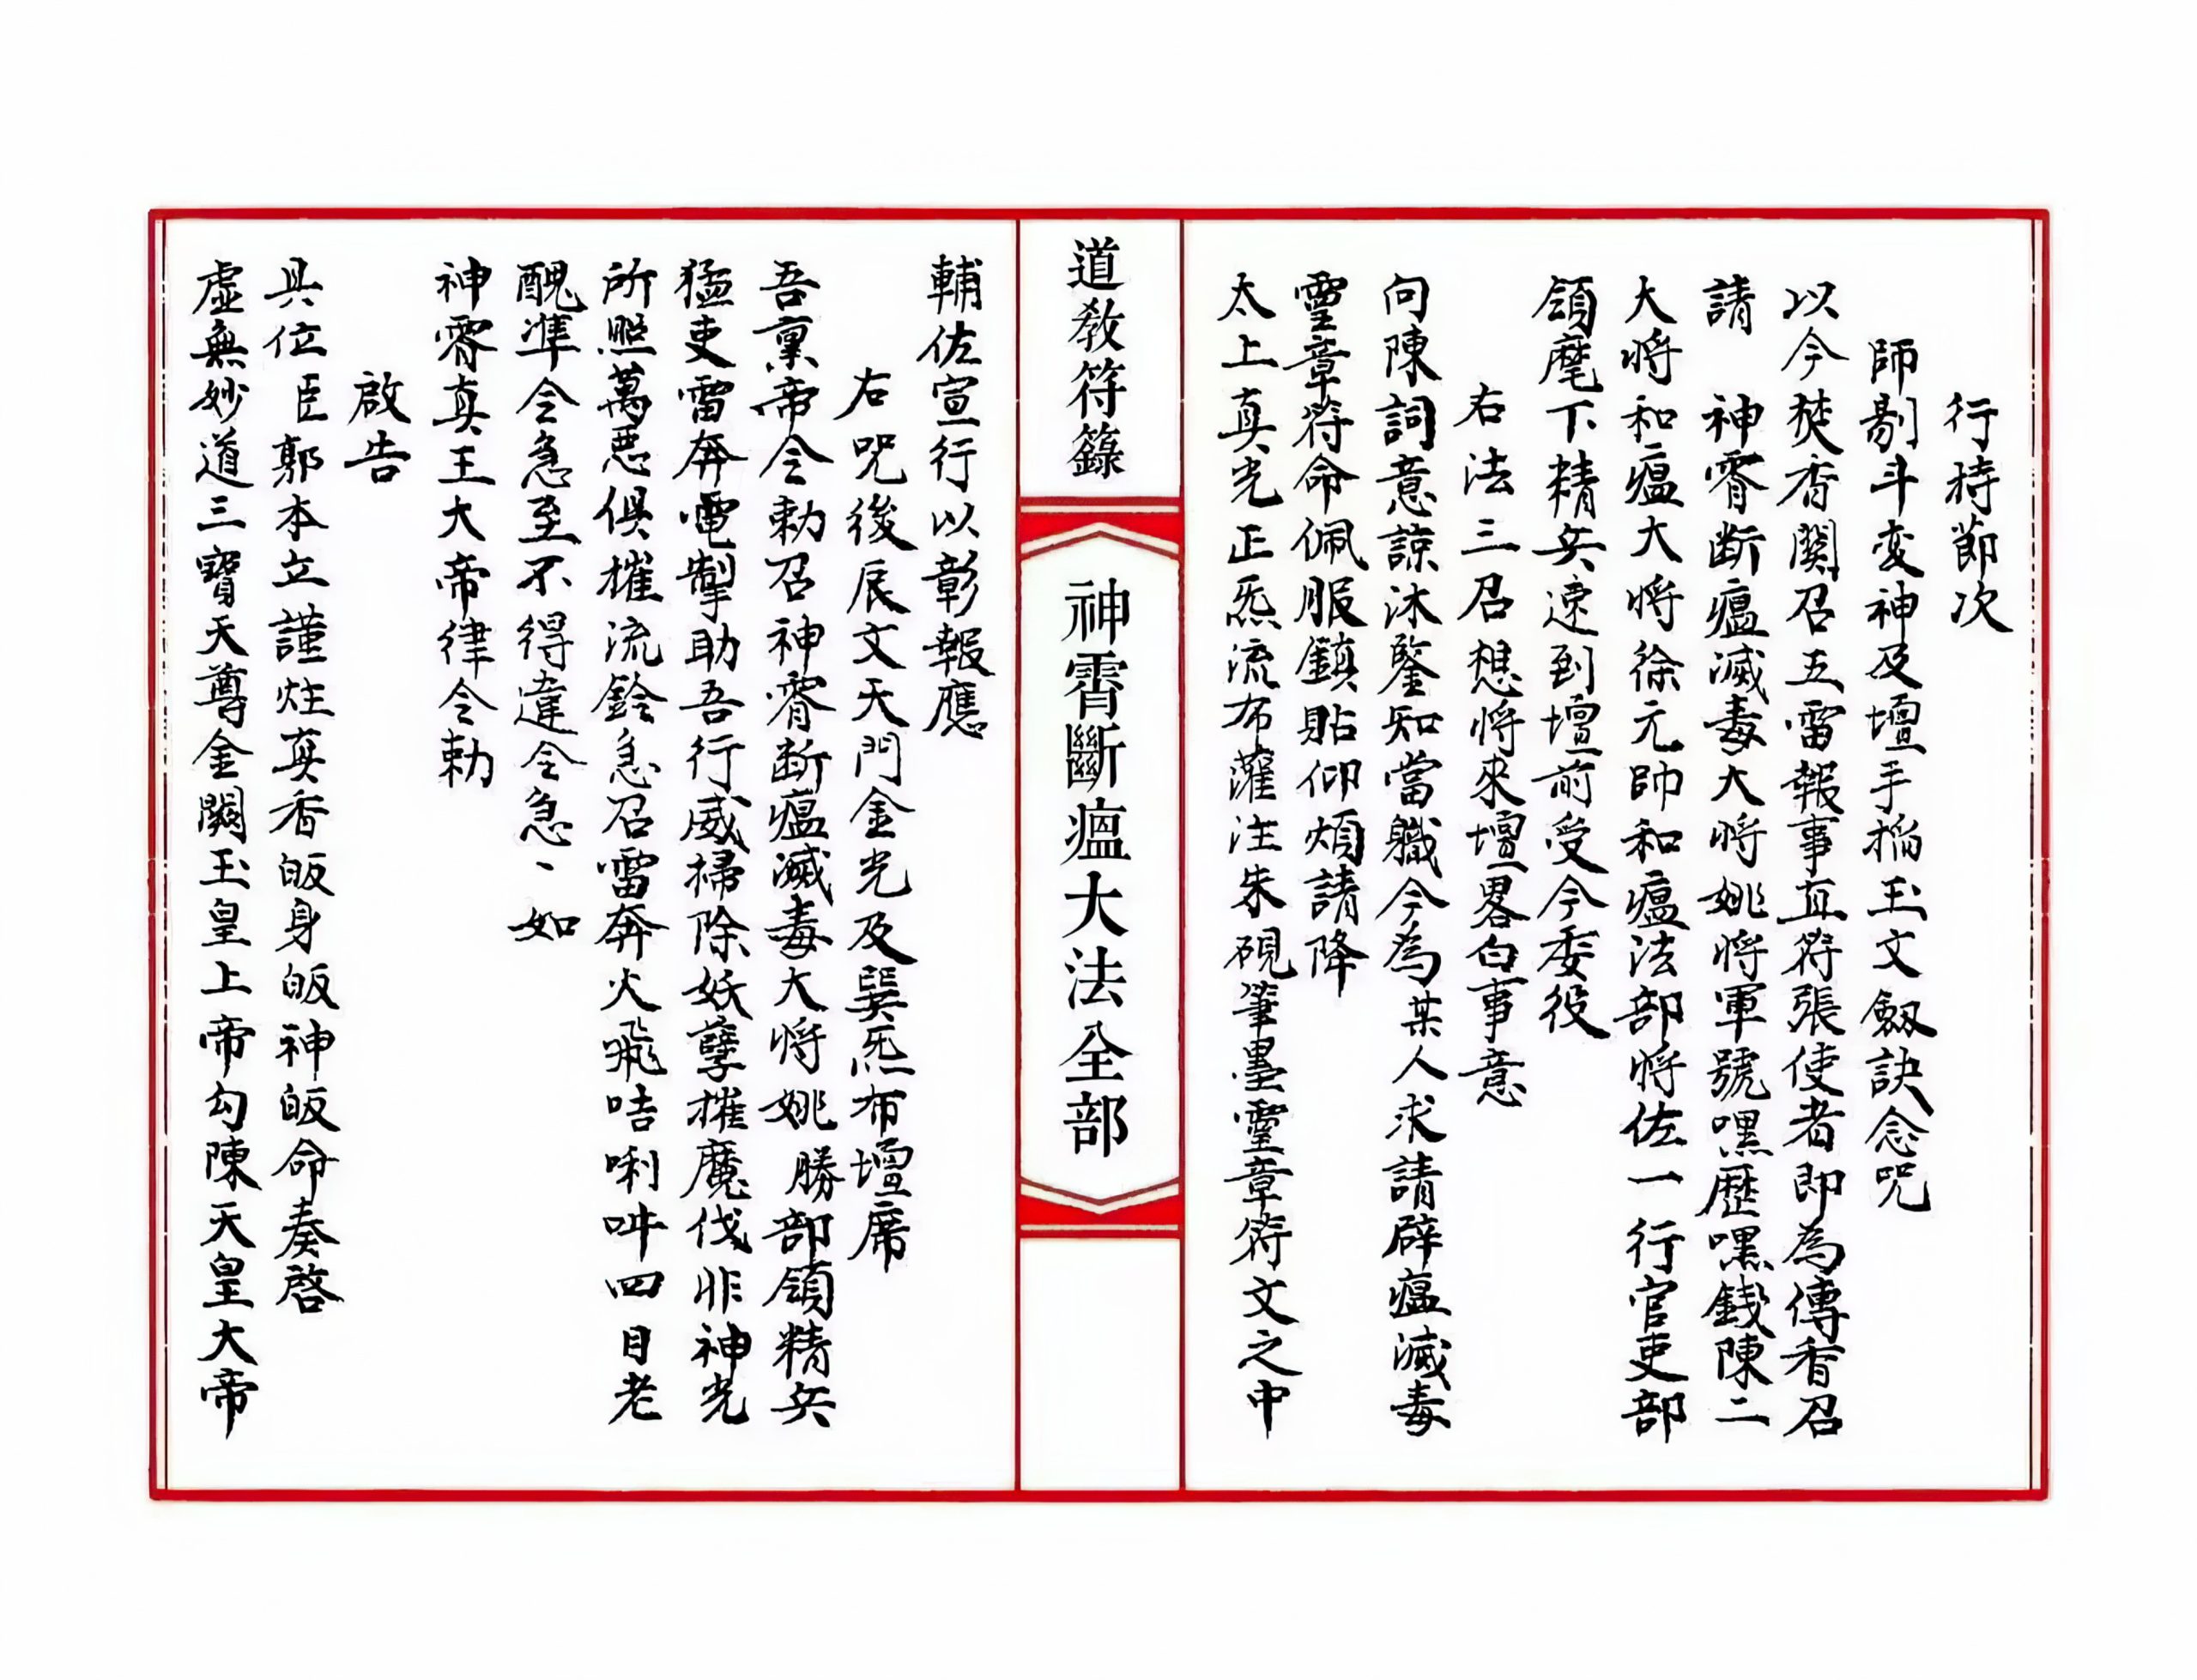 行持節次
師剔斗変神及壇手搯玉文劔訣念呪
以今焚香關召五雷報事直符張使者即為傳香召
請　神霄断瘟滅毒大将姚将軍號嘿歷嘿錢陳二
大将和瘟大将徐元帥和瘟法部将佐一行官吏部
領麾下精兵速到壇前受今委役
右法三召想将來壇畧白事意
向陳詞意諒沐鑒知當職今為某人求請辟瘟滅毒
靈章符命佩服鎮貼仰煩請降
太上真光正炁流布灌注朱硯筆墨靈章符文之中
道教符籙
神霄斷瘟大法全部
輔佐宣行以彰報應
右呪後辰文天門金光及巽炁布壇席
吾稟帝令勅召神霄断瘟滅毒大将姚勝部領精兵
猛吏雷奔電掣助吾行威掃除妖孽摧魔伐非神光
所照萬惡俱摧流鈴急召雷奔火飛咭唎吽四目老
醜準令急至不得違令急〻如
神霄真王大帝律令勅
啟告
具位臣郭本立謹炷真香皈身皈神皈命奏啓
虛無妙道三寶天尊金闕玉皇上帝勾陳天皇大帝